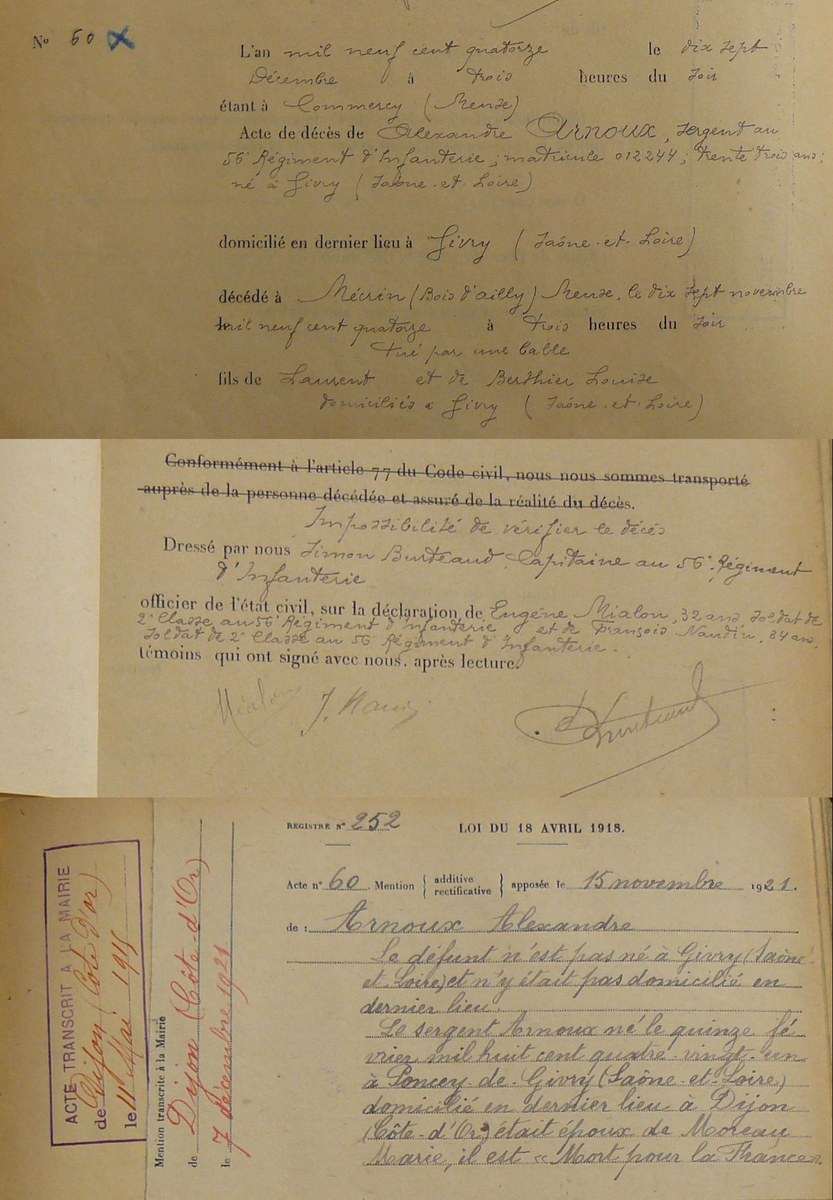 N° 60 X
L'an mil neuf cent quatorze le dix sept
Décembre à trois heures du soir
étant à Commercy (Meuse)
Acte de décès de Alexandre Arnoux, sergent au
56e Régiment d'Infanterie; matricule 012244; trente trois ans;
né à Givry (Saône-et-Loire)
domicilié en dernier lieu à Givry (Saône-et-Loire)
décédé à Mécrin (Bois d'ailly) Meuse, le dix sept novembre
mil neuf cent quatorze à trois heures du soir
tué par une balle
fils de Laurent et de Berthier Louise
domiciliés à Givry (Saône-et-Loire)
Conformément à l'article 77 du Code civil, nous nous sommes transporté
auprès de la personne décédée et assuré de la réalité du décès.
Impossibilité de vérifier le décès
Dressé par nous Simon Burteaud Capitaine au 56e Régiment
d'Infanterie
officier de l'état civil, sur la déclaration de Eugène Mialon, 32 ans, soldat de
2e Classe au 56e Régiment d'Infanterie et de François Naudin, 34 ans,
soldat de 2e Classe au 56e Régiment d'Infanterie.
témoins qui ont signé avec nous, après lecture.
Mialon
REGISTRE N° 252 LOI DU 18 AVRIL 1918.
Acte n° 60. Mention { additive rectificative } apposée le 15 novembre 1921.
de : Arnoux Alexandre
Le défunt n'est pas né à Givry (Saône-
et-Loire) et n'y était pas domicilié en
dernier lieu.
Le sergent Arnoux né le quinze fé
vrier mil huit cent quatre-vingt-un
à Poncey-de-Givry (Saône-et-Loire)
domicilié en dernier lieu à Dijon
(Côte-d'Or) était époux de Moreau
Marie, il est « Mort pour la France ».
ACTE TRANSCRIT A LA MAIRIE
de Dijon (Côte d'Or)
le 11 Mai 1915
Mention transcrite à la Mairie
de Dijon (Côte-d'Or)
le 7 décembre 1921